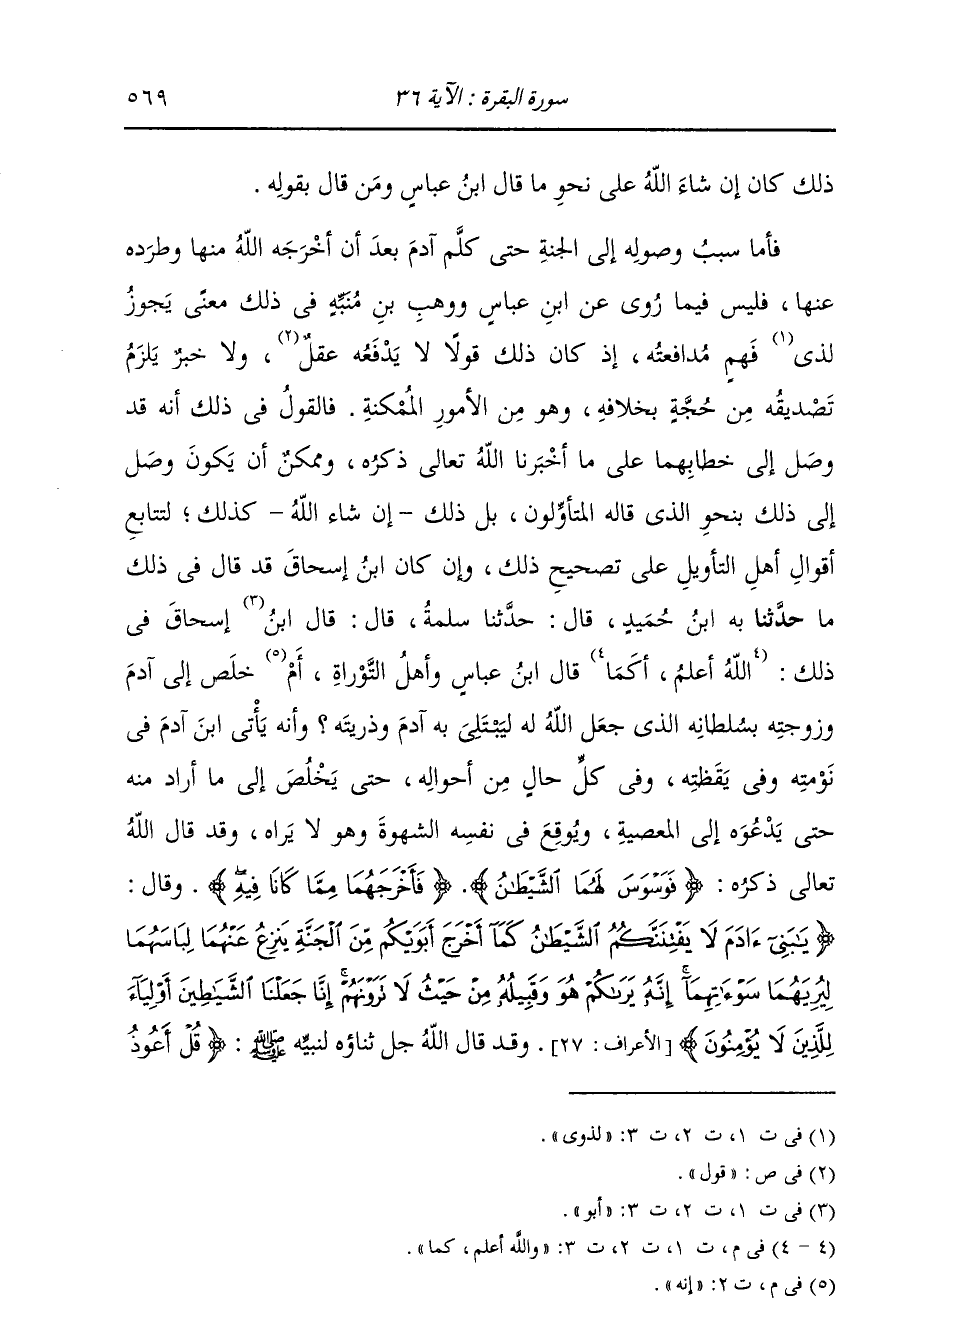 سورة البقرة : الآية ٣٦ ٥٦٩
ذلك كان إن شاءَ اللَّهُ على نحوِ ما قال ابنُ عباسٍ ومَن قال بقولِه .
فأما سببُ وصولِه إلى الجنةِ حتى كلَّم آدمَ بعدَ أن أخْرَجَه اللَّهُ منها وطرَده
عنها ، فليس فيما رُوى عن ابنِ عباسٍ ووهبِ بنِ مُنَبِّهٍ فى ذلك معنًى يَجوزُ
لذى(١) فَهمٍ مُدافعتُه ، إذ كان ذلك قولًا لا يَدْفَعُه عقلٌ(٢) ، ولا خبرٌ يَلزَمُ
تَصْديقُه مِن حُجَّةٍ بخلافِهِ ، وهو مِن الأمورِ المُمْكنةِ . فالقولُ فى ذلك أنه قد
وصَل إلى خطابِهما على ما أخْبَرنا اللَّهُ تعالى ذكرُه ، وممكنٌ أن يَكونَ وصَل
إلى ذلك بنحوِ الذى قاله المتأوِّلون ، بل ذلك - إن شاء اللَّهُ - كذلك ؛ لتتابعِ
أقوالِ أهلِ التأويلِ على تصحيحِ ذلك ، وإن كان ابنُ إسحاقَ قد قال فى ذلك
ما حدَّثنا به ابنُ حُميدٍ ، قال : حدَّثنا سلمةُ ، قال : قال ابنُ(٣) إسحاقَ فى
ذلك : (٤اللَّهُ أعلمُ ، أكَمَا٤) قال ابنُ عباسٍ وأهلُ التَّوْراةِ ، أَمْ(٥) خلَص إلى آدمَ
وزوجتِه بسُلطانِه الذى جعَل اللَّهُ له ليَبْتَلِىَ به آدمَ وذريتَه ؟ وأنه يَأْتى ابنَ آدمَ فى
نَوْمتِه وفى يَقَظتِه ، وفى كلِّ حالٍ مِن أحوالِه ، حتى يَخْلُصَ إلى ما أراد منه
حتى يَدْعُوَه إلى المعصيةِ ، ويُوقِعَ فى نفسِه الشهوةَ وهو لا يَراه ، وقد قال اللَّهُ
تعالى ذكرُه : ﴿ فَوَسْوَسَ لَهُمَا ٱلشَّيْطَٰنُ ﴾ . ﴿ فَأَخْرَجَهُمَا مِمَّا كَانَا فِيهِ ﴾ . وقال :
﴿ يَٰبَنِىٓ ءَادَمَ لَا يَفْتِنَنَّكُمُ ٱلشَّيْطَٰنُ كَمَآ أَخْرَجَ أَبَوَيْكُم مِّنَ ٱلْجَنَّةِ يَنزِعُ عَنْهُمَا لِبَاسَهُمَا
لِيُرِيَهُمَا سَوْءَٰتِهِمَآ ۗ إِنَّهُۥ يَرَىٰكُمْ هُوَ وَقَبِيلُهُۥ مِنْ حَيْثُ لَا تَرَوْنَهُمْ ۗ إِنَّا جَعَلْنَا ٱلشَّيَٰطِينَ أَوْلِيَآءَ
لِلَّذِينَ لَا يُؤْمِنُونَ ﴾ [الأعراف : ٢٧] . وقد قال اللَّهُ جل ثناؤه لنبيِّه ﷺ : ﴿ قُلْ أَعُوذُ
(١) فى ت ١، ت ٢، ت ٣: «لذوى» .
(٢) فى ص : «قول» .
(٣) فى ت ١، ت ٢، ت ٣: «أبو» .
(٤ - ٤) فى م، ت ١، ت ٢، ت ٣: «واللَّه أعلم، كما» .
(٥) فى م، ت ٢: «إنه» .